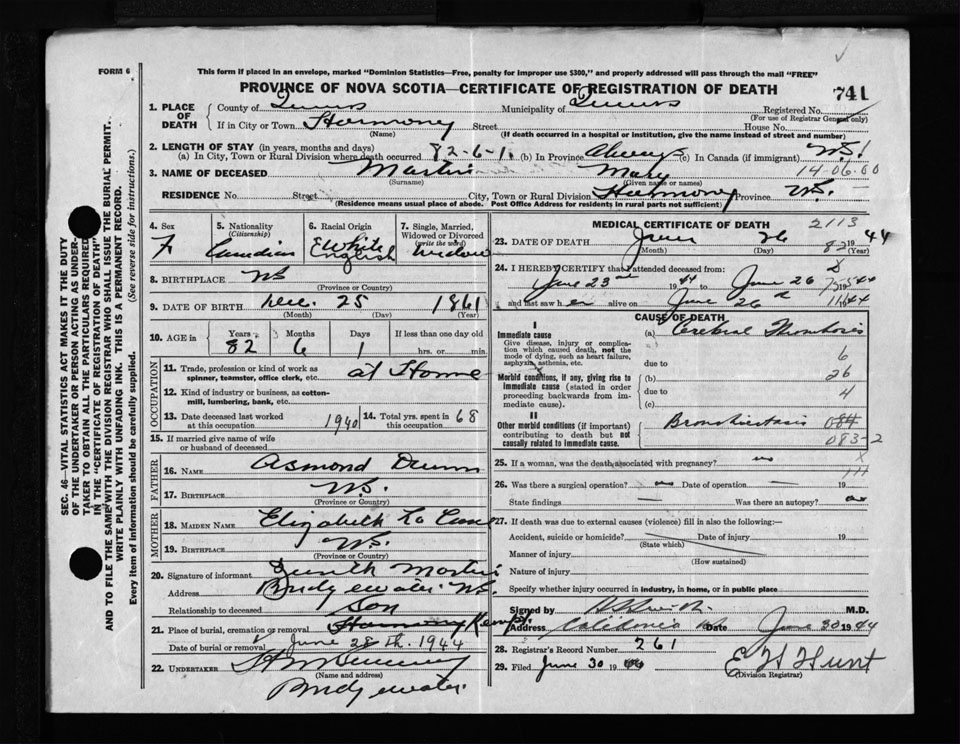 FORM 6
This form if placed in an envelope, marked "Dominion Statistics—Free, penalty for improper use $300," and properly addressed will pass through the mail "FREE"
PROVINCE OF NOVA SCOTIA—CERTIFICATE OF REGISTRATION OF DEATH
741
1. PLACE OF DEATH
County of Queens Municipality of Queens Registered No.
(For use of Registrar General only)
If in City or Town Harmony Street House No.
(Name) (If death occurred in a hospital or institution, give the name instead of street and number)
2. LENGTH OF STAY (in years, months and days)
(a) In City, Town or Rural Division where death occurred 82-6-1 (b) In Province Always (c) In Canada (if immigrant)
3. NAME OF DECEASED Martin Mary 14-06.00
(Surname) (Given name or names)
RESIDENCE No. Street City, Town or Rural Division Harmony Province N.S.
(Residence means usual place of abode. Post Office Address for residents in rural parts not sufficient)
4. Sex F
5. Nationality (Citizenship) Canadian
6. Racial Origin White English
7. Single, Married, Widowed or Divorced (write the word) Widow
8. BIRTHPLACE NS
(Province or Country)
9. DATE OF BIRTH Dec. 25 1861
(Month) (Day) (Year)
10. AGE in Years Months Days If less than one day old
82 6 1 hrs. or min.
OCCUPATION
11. Trade, profession or kind of work as spinner, teamster, office clerk, etc. at Home
12. Kind of industry or business, as cotton-mill, lumbering, bank, etc.
13. Date deceased last worked at this occupation 1940
14. Total yrs. spent in this occupation 68
15. If married give name of wife or husband of deceased
FATHER
16. NAME Asmond Dunn
17. BIRTHPLACE N.S.
(Province or Country)
MOTHER
18. MAIDEN NAME Elizabeth
19. BIRTHPLACE N.S.
(Province or Country)
20. Signature of informant Martin
Address Bridgewater N.S.
Relationship to deceased Son
21. Place of burial, cremation or removal Harmony Kempt.
Date of burial or removal June 28th. 1944
22. UNDERTAKER
(Name and address)
Bridgewater
MEDICAL CERTIFICATE OF DEATH 2113
23. DATE OF DEATH June 26 1944
(Month) (Day) (Year)
82
24. I HEREBY CERTIFY that I attended deceased from:
June 23rd 1944 to June 26 1944
and last saw her alive on June 26th 1944
CAUSE OF DEATH
I
Immediate cause (a) Cerebral Thrombosis
Give disease, injury or complication which caused death, not the mode of dying, such as heart failure, asphyxia, asthenia, etc.
due to 6
Morbid conditions, if any, giving rise to immediate cause (stated in order proceeding backwards from immediate cause).
(b) 26
due to 4
(c)
II
Other morbid conditions (if important) contributing to death but not causally related to immediate cause.
Bronchiectasis 084
083-2
25. If a woman, was the death associated with pregnancy? no
26. Was there a surgical operation? no Date of operation 19
State findings Was there an autopsy? no
27. If death was due to external causes (violence) fill in also the following:—
Accident, suicide or homicide? Date of injury 19
(State which)
Manner of injury
(How sustained)
Nature of injury
Specify whether injury occurred in industry, in home, or in public place
Signed by M.D.
Address Caledonia NS Date June 30 1944
28. Registrar's Record Number 261
29. Filed June 30 19 E H Hunt
(Division Registrar)
SEC. 46—VITAL STATISTICS ACT MAKES IT THE DUTY
OF THE UNDERTAKER OR PERSON ACTING AS UNDER-
TAKER TO OBTAIN ALL THE PARTICULARS REQUIRED
IN THE "CERTIFICATE OF REGISTRATION OF DEATH"
AND TO FILE THE SAME WITH THE DIVISION REGISTRAR WHO SHALL ISSUE THE BURIAL PERMIT.
WRITE PLAINLY WITH UNFADING INK. THIS IS A PERMANENT RECORD.
Every item of information should be carefully supplied. (See reverse side for instructions.)